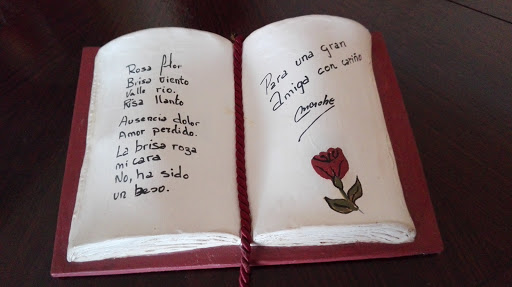 Rosa flor
Brisa viento
Valle rio.
Risa llanto
Ausencia dolor
Amor perdido.
La brisa roza
mi cara
No, ha sido
un beso.
Para una gran
Amiga con cariño